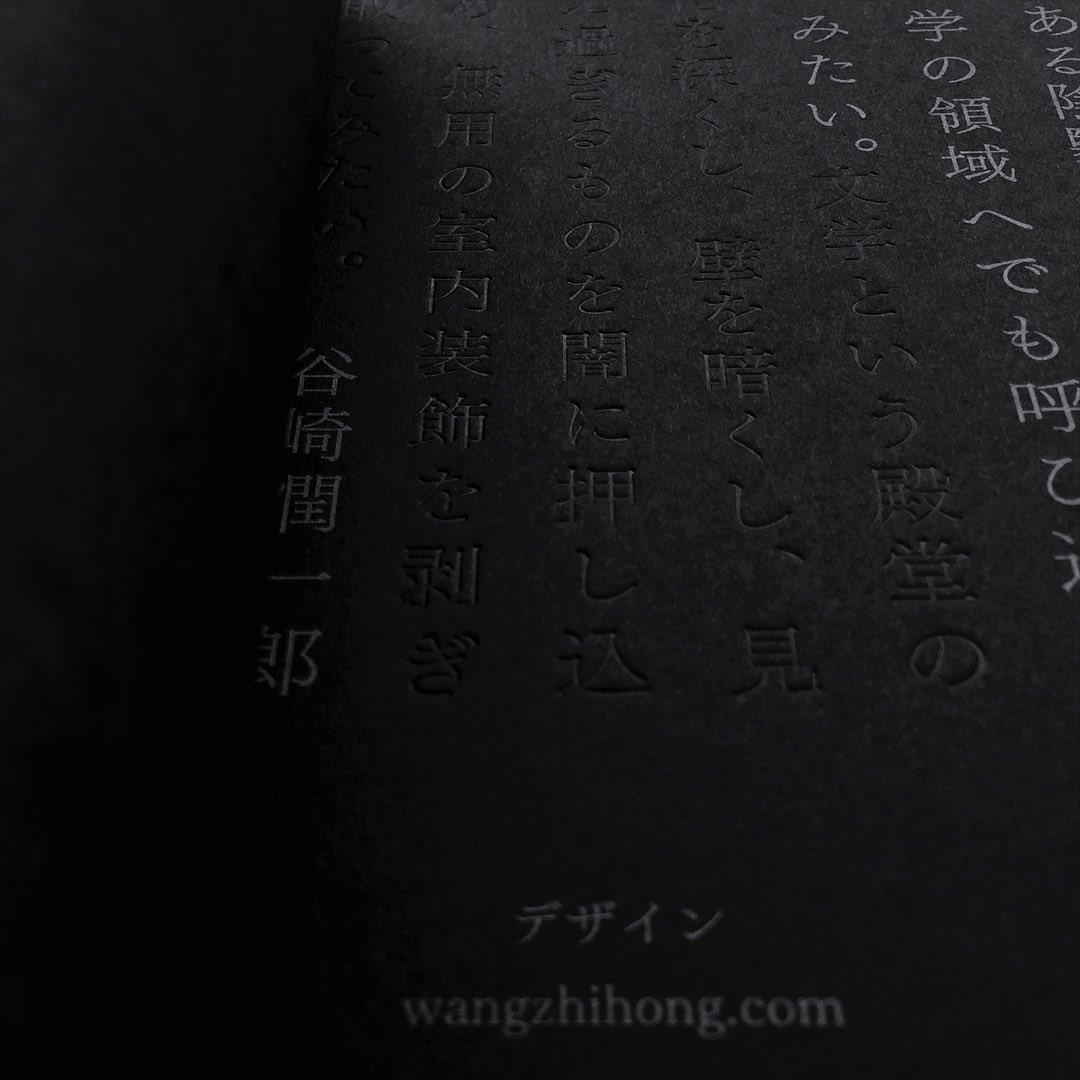 ある陰
学の領域へでも呼び込
みたい。文学という殿堂の
を深くし、壁を暗くし、見
過ぎるものを闇に押し込
め、無用の室内装飾を剥ぎ
ってみたい。
谷崎潤一郎
デザイン
wangzhihong.com